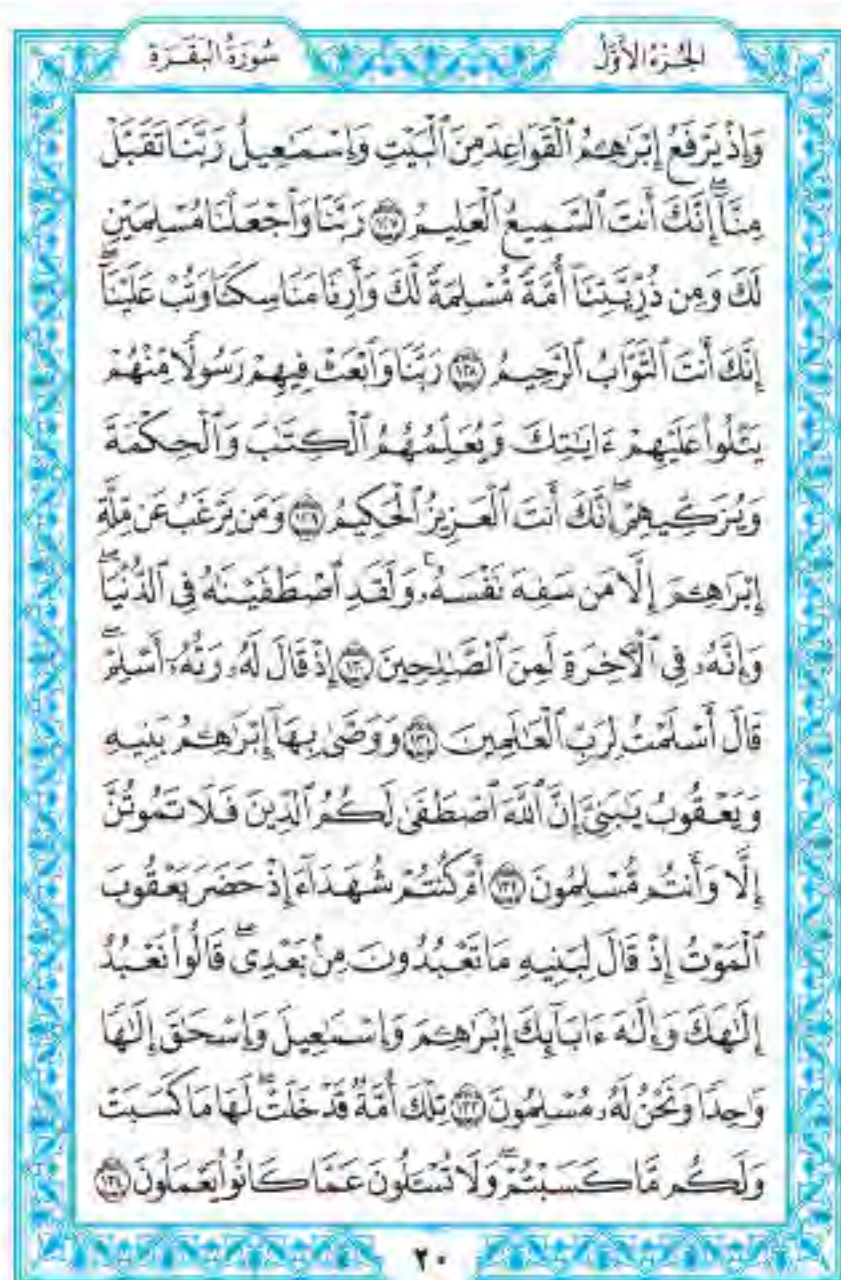 الجزء الأول
سورة البقرة
وَإِذْ يَرْفَعُ إِبْرَٰهِـۧمُ ٱلْقَوَاعِدَ مِنَ ٱلْبَيْتِ وَإِسْمَٰعِيلُ رَبَّنَا تَقَبَّلْ
مِنَّآ ۖ إِنَّكَ أَنتَ ٱلسَّمِيعُ ٱلْعَلِيمُ ١٢٧ رَبَّنَا وَٱجْعَلْنَا مُسْلِمَيْنِ
لَكَ وَمِن ذُرِّيَّتِنَآ أُمَّةً مُّسْلِمَةً لَّكَ وَأَرِنَا مَنَاسِكَنَا وَتُبْ عَلَيْنَآ ۖ
إِنَّكَ أَنتَ ٱلتَّوَّابُ ٱلرَّحِيمُ ١٢٨ رَبَّنَا وَٱبْعَثْ فِيهِمْ رَسُولًا مِّنْهُمْ
يَتْلُوا۟ عَلَيْهِمْ ءَايَٰتِكَ وَيُعَلِّمُهُمُ ٱلْكِتَٰبَ وَٱلْحِكْمَةَ
وَيُزَكِّيهِمْ ۚ إِنَّكَ أَنتَ ٱلْعَزِيزُ ٱلْحَكِيمُ ١٢٩ وَمَن يَرْغَبُ عَن مِّلَّةِ
إِبْرَٰهِـۧمَ إِلَّا مَن سَفِهَ نَفْسَهُۥ ۚ وَلَقَدِ ٱصْطَفَيْنَٰهُ فِى ٱلدُّنْيَا ۖ
وَإِنَّهُۥ فِى ٱلْـَٔاخِرَةِ لَمِنَ ٱلصَّٰلِحِينَ ١٣٠ إِذْ قَالَ لَهُۥ رَبُّهُۥٓ أَسْلِمْ ۖ
قَالَ أَسْلَمْتُ لِرَبِّ ٱلْعَٰلَمِينَ ١٣١ وَوَصَّىٰ بِهَآ إِبْرَٰهِـۧمُ بَنِيهِ
وَيَعْقُوبُ يَٰبَنِىَّ إِنَّ ٱللَّهَ ٱصْطَفَىٰ لَكُمُ ٱلدِّينَ فَلَا تَمُوتُنَّ
إِلَّا وَأَنتُم مُّسْلِمُونَ ١٣٢ أَمْ كُنتُمْ شُهَدَآءَ إِذْ حَضَرَ يَعْقُوبَ
ٱلْمَوْتُ إِذْ قَالَ لِبَنِيهِ مَا تَعْبُدُونَ مِنۢ بَعْدِى ۖ قَالُوا۟ نَعْبُدُ
إِلَٰهَكَ وَإِلَٰهَ ءَابَآئِكَ إِبْرَٰهِـۧمَ وَإِسْمَٰعِيلَ وَإِسْحَٰقَ إِلَٰهًا
وَٰحِدًا وَنَحْنُ لَهُۥ مُسْلِمُونَ ١٣٣ تِلْكَ أُمَّةٌ قَدْ خَلَتْ ۖ لَهَا مَا كَسَبَتْ
وَلَكُم مَّا كَسَبْتُمْ ۖ وَلَا تُسْـَٔلُونَ عَمَّا كَانُوا۟ يَعْمَلُونَ ١٣٤
٢٠